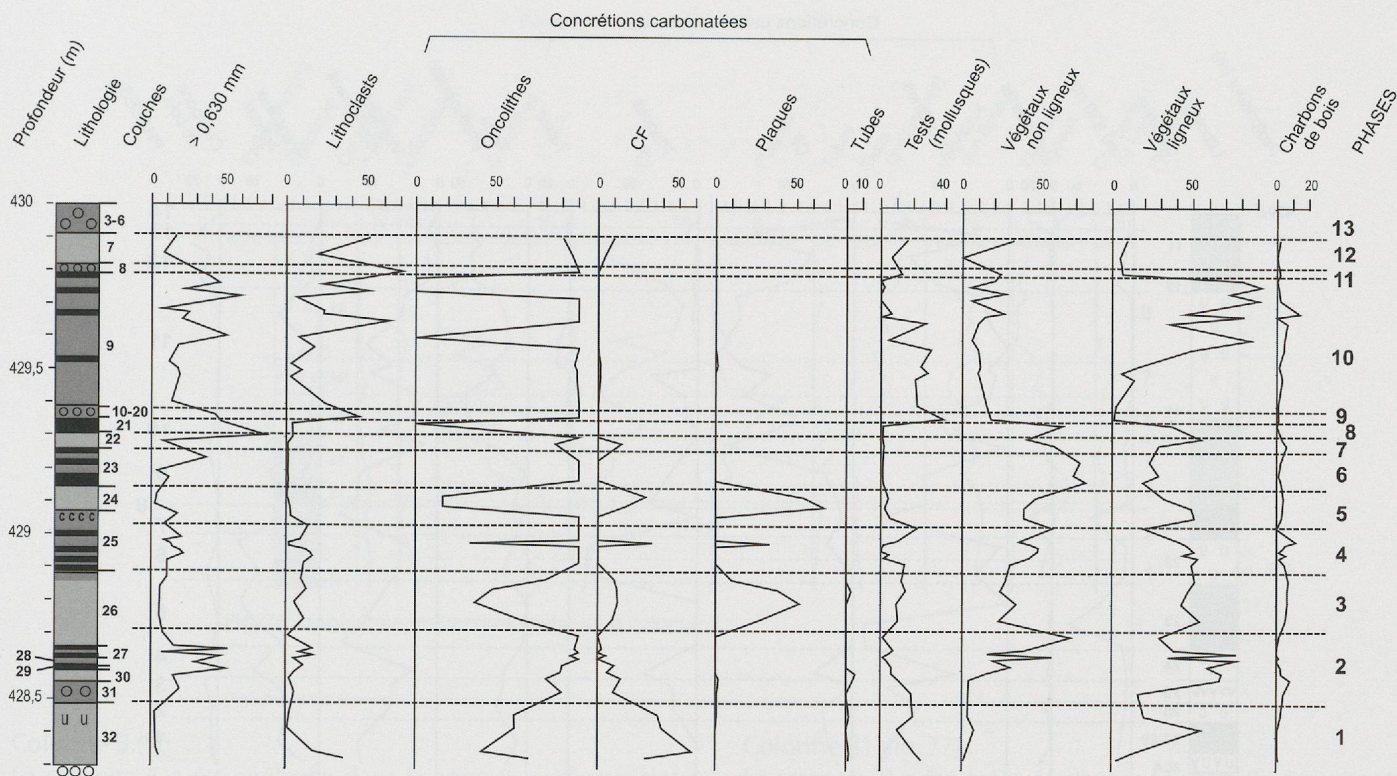 Concrétions carbonatées
Profondeur (m)
Lithologie
Couches
> 0,630 mm
Lithoclasts
Oncolithes
CF
Plaques
Tubes
Tests
(mollusques)
Végétaux
non ligneux
Végétaux
ligneux
Charbons
de bois
PHASES
0 50 0 50 50 0 50 0 50 0 10 0 40 0 50 0 50 0 20
430
3-6
13
7
12
8
11
9
10
429,5
10-20
9
21
8
22
7
23
6
24
5
cccc
429
25
4
26
3
27
28
2
29
30
428,5
31
u u
32
1